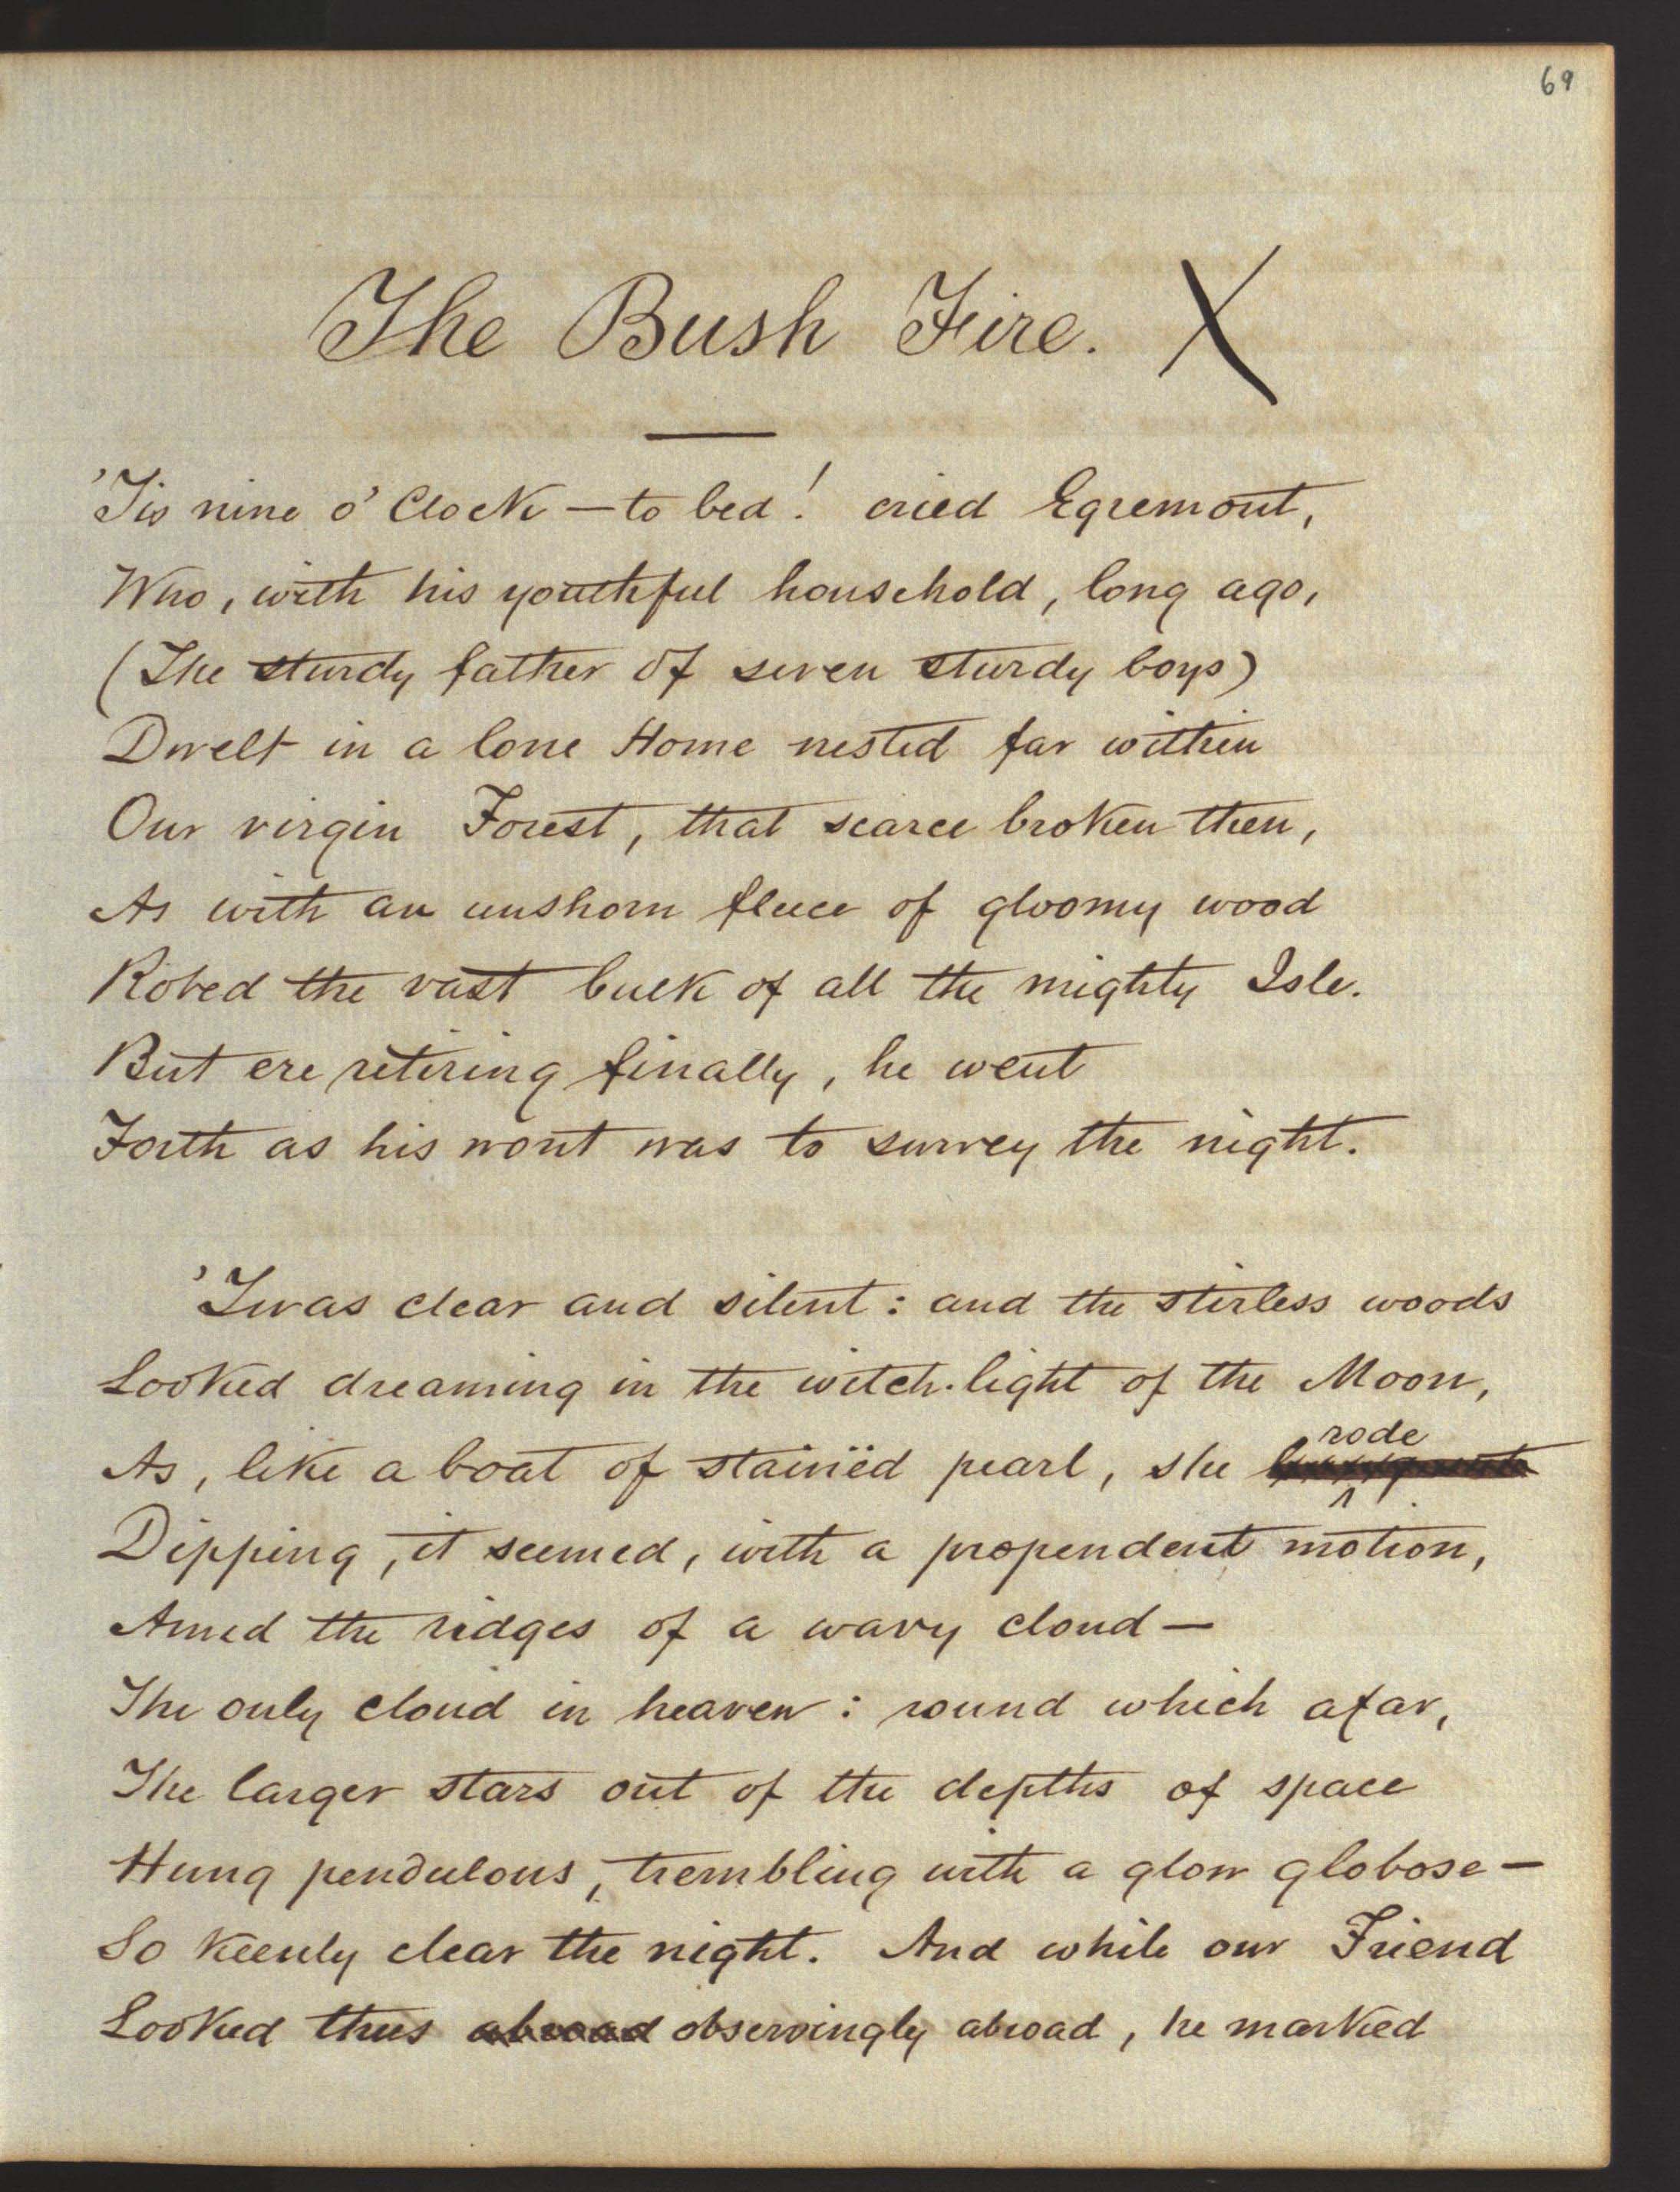 69
The Bush Fire. X
'Tis nine o' Clock — to bed! cried Egremont,
Who, with his youthful household, long ago,
(The sturdy father of seven sturdy boys)
Dwelt in a lone Home nested far within
Our virgin Forest, that scarce broken then,
As with an unshorn fleece of gloomy wood
Robed the vast bulk of all the mighty Isle.
But ere retiring finally, he went
Forth as his wont was to survey the night.
'Twas clear and silent: and the stirless woods
Looked dreaming in the witch-light of the Moon,
rode
As, like a boat of stainëd pearl, she
Dipping, it seemed, with a propendent motion,
Amid the ridges of a wavy cloud —
The only cloud in heaven: round which afar,
The larger stars out of the depths of space
Hung pendulous, trembling with a glow globose —
So keenly clear the night. And while our Friend
Looked thus abroad observingly abroad, he marked